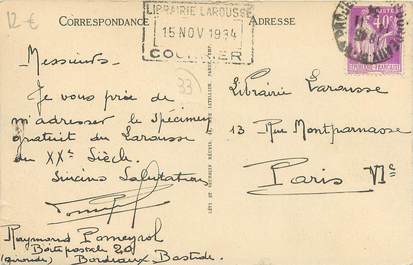 12 €
CORRESPONDANCE
ADRESSE
LIBRAIRIE LAROUSSE
15 NOV 1934
COURRIER
40c
33
Messieurs,
Je vous prie de
m'adresser le Spécimen
gratuit du Larousse
du XXe Siècle.
Sincères Salutations
Raymond Pomeyrol
Boite postale 20
(Gironde) Bordeaux Bastide.
Librairie Larousse
13 Rue Montparnasse
Paris VIe